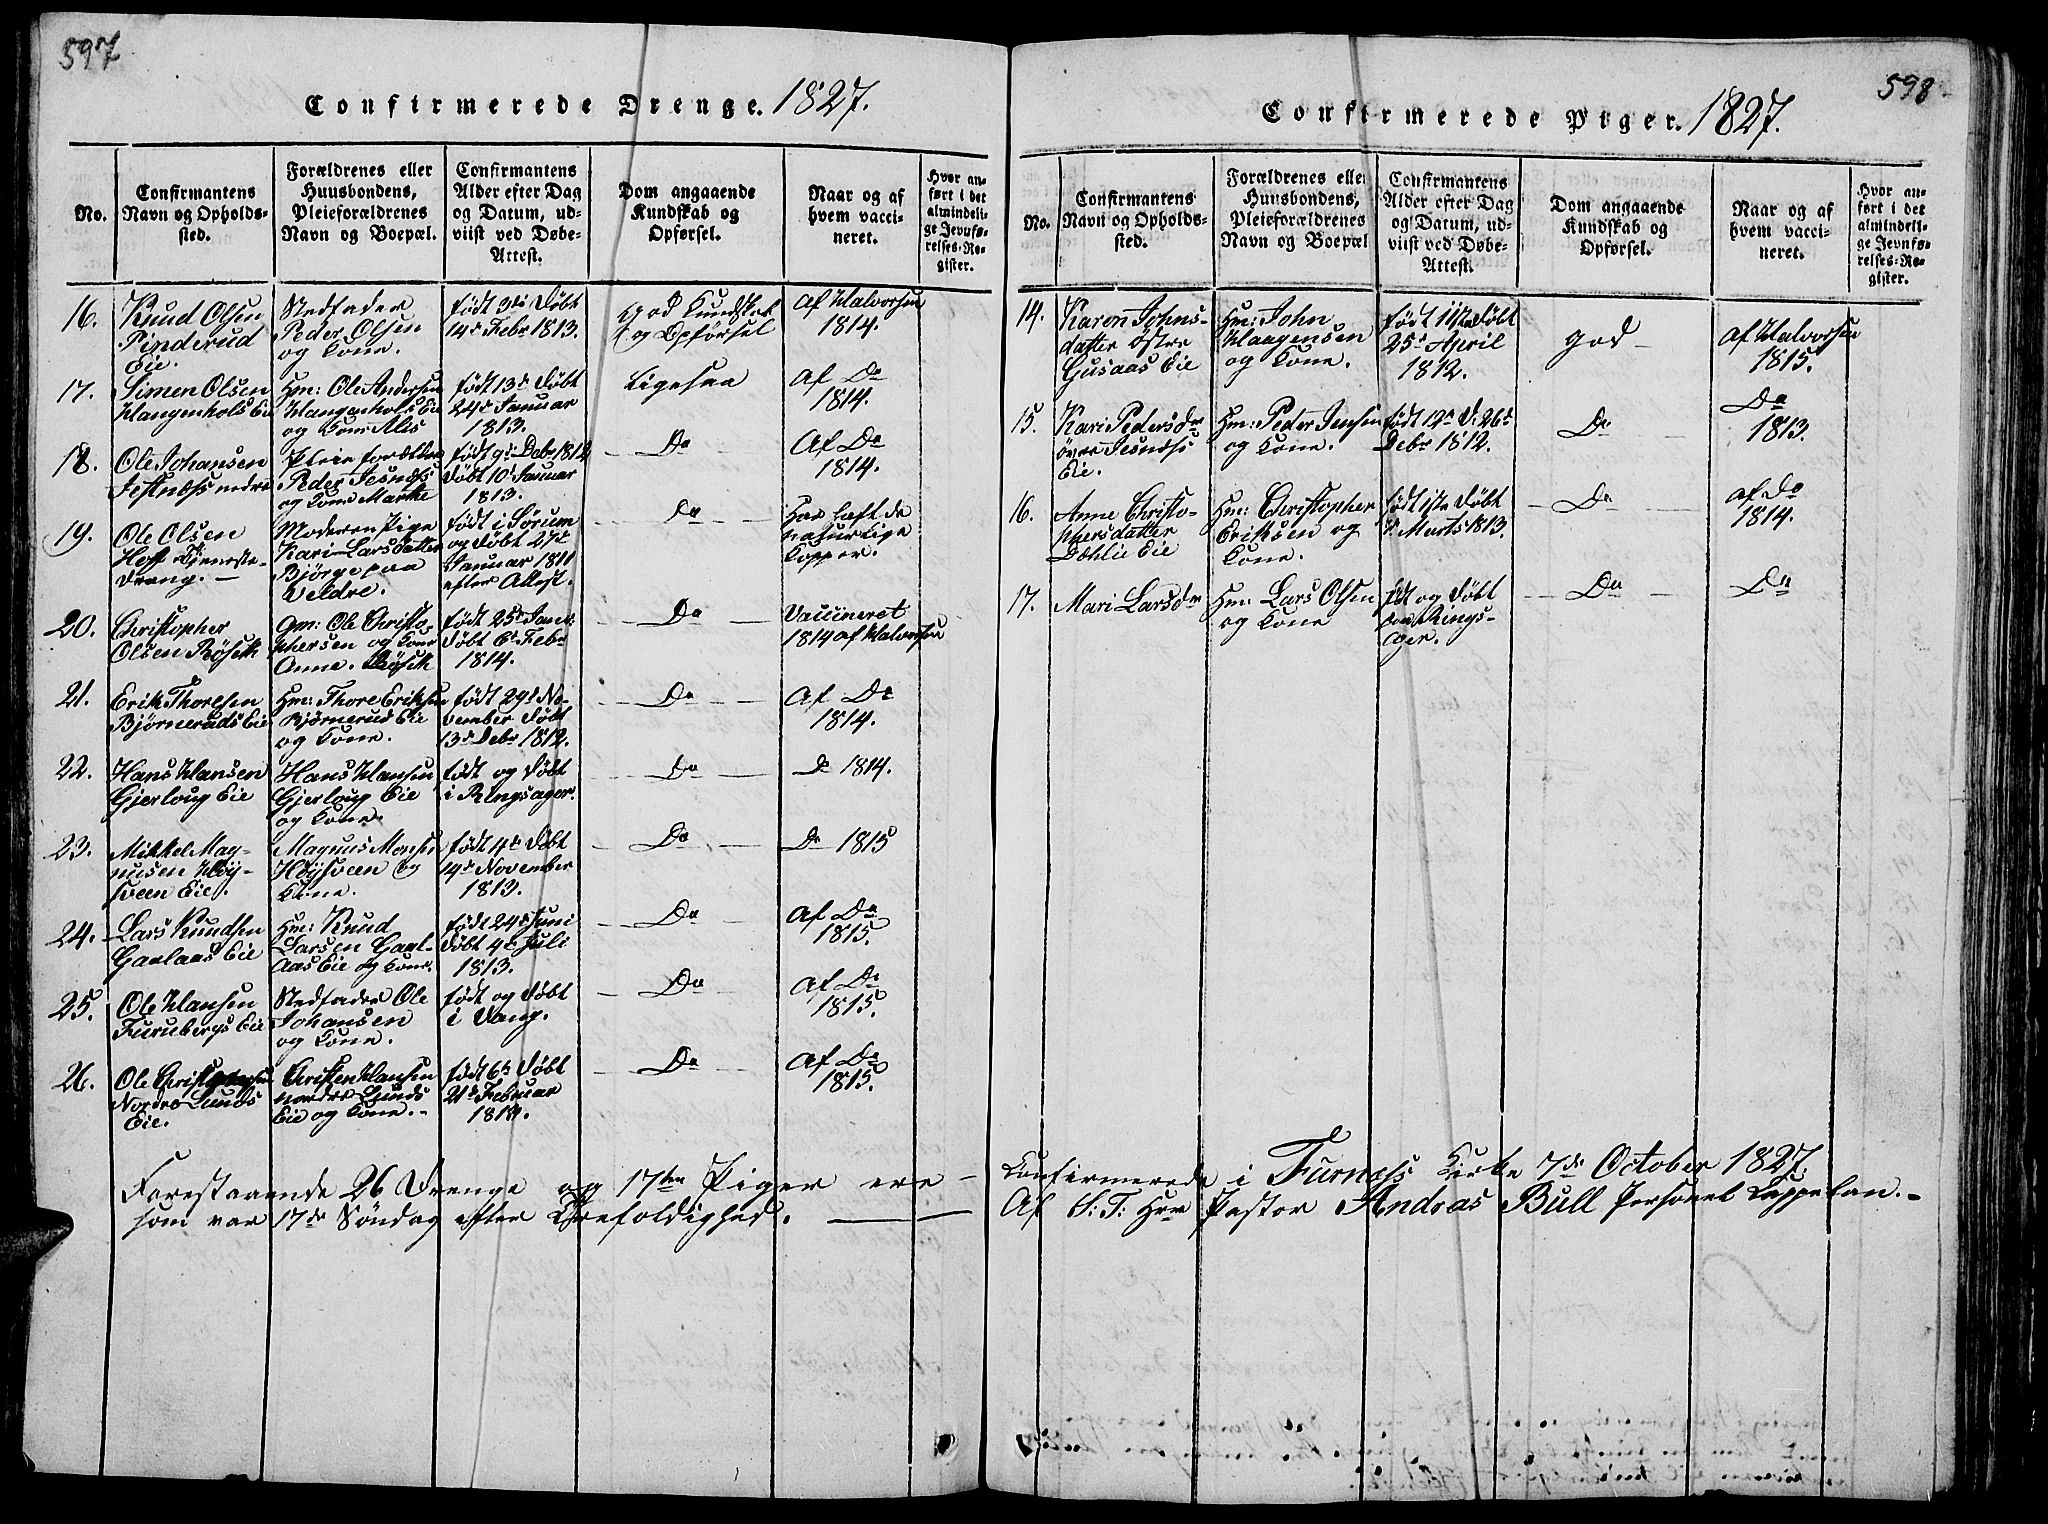 597
Confirmerede Drenge. 1827.
No.
Confirmantens
Navn og Opholds-
sted.
Forældrenes eller
Huusbondens,
Pleieforældrenes
Navn og Boepæl.
Confirmantens
Alder efter Dag
og Datum, ud-
viist ved Døbe-
Attest.
Dom angaaende
Kundskab og
Opførsel.
Naar og af
hvem vacci-
neret.
Hvor an-
ført i det
almindeli-
ge Jevnfø-
relses-Re-
gister.
16.
Knud Olsen
Pinderud
Eie.
Stedfader
Peder Olsen
og Kone.
født 3de Døbt
14de Febr 1813.
god Kundskab
og Opførsel
Af Halvorsen
1814.
17.
Simen Olsen
Haugenhols Eie
Hm: Ole Andersen
Haugenhols Eie
og Kone Ales
født 13de Døbt
24de Januar
1813.
Ligesaa
Af Do
1814.
18.
Ole Johansen
Jesnæss nedre
Pleie forældre
Peder Jesnæss
og Kone Marthe
født 9de Debr 1812
Døbt 10de Januar
1813.
Do
Af Do
1814.
19.
Ole Olsen
Hoff Tjeneste-
dreng. —
Moderen Pige
Kari Larsdatter
Bjørge paa
Veldre.
født i Sørum
og Døbt 27de
Januar 1811
efter Attest.
Do
Har haft de
naturlige
Kopper.
20.
Christopher
Olsen Røseth
gm: Ole Christo-
phersen og Kone
Anne. Røseth
født 25de Janr:
Døbt 6te Febr
1814.
Do
Vaccineret
1814 af Halvorsen
21.
Erik Thoresen
Bjørneruds Eie
Hm: Thore Eriksen
Bjørnerud Eie
og Kone.
født 29de No-
vember Døbt
13de Debr 1812.
Do
Af Do
1814.
22.
Hans Hansen
Gjerloug Eie
Hans Hansen
Gjerloug Eie
og Kone.
født og Døbt
i Ringsager.
Do
Do 1814.
23.
Mikkel Mag-
nusen Høy-
sveen Eie.
Magnus Monse
Høysveen og
Kone.
født 4de Døbt
14de November
1813.
Do
Do 1815
24.
Lars Knudsen
Gaalaas Eie
Hm: Knud
Larsen Gaal-
aas Eie og Kone.
født 24de Juni
Døbt 4de Juli
1813.
Do
Af Do
1815.
25.
Ole Hansen
Furubergs Eie
Stedfader Ole
Johansen
og Kone.
født og Døbt
i Vang.
Do
Af Do
1815.
26.
Ole
Nordre Lunds
Eie.
Christen Hansen
nordre Lunds
Eie og Kone.
født 6te Døbt
21de Februar
Do
Af Do
1815.
Forestaaende 26 Drenge og 17ten Piger ere —
som var 17de Søndag efter Trefoldighed. —
598
Confirmerede Piger. 1827.
No.
Confirmantens
Navn og Opholds-
sted.
Forældrenes eller
Huusbondens,
Pleieforældrenes
Navn og Boepæl
Confirmantens
Alder efter Dag
og Datum, ud-
viist ved Døbe-
Attest.
Dom angaaende
Kundskab og
Opførsel.
Naar og af
hvem vacci-
neret.
Hvor an-
ført i det
almindeli-
ge Jevnfø-
relses-Re-
gister.
14.
Karen Johns-
datter østre
Gusaas Eie
Hm: John
Haagensen
og Kone.
født 11te Døbt
25de April
1812.
god —
Af Halvorsen
1815.
15.
Kari Pedersdr
øvre Jesnæss
Eie.
Hm: Peder Jensen
og Kone.
født 12te D: 26de
Debr 1812.
Do
Do
1813.
16.
Anne Christo-
phersdatter
Dæhlie Eie
Hm: Christopher
Eriksen og
Kone.
født 1ste Døbt
7de Marts 1813.
Do
Af Do
1814.
17.
Mari Larsdr
Hm: Lars Olsen
og Kone
født og Døbt
Rings-
ager.
Do
Do
Confirmerede i Furnæss Kirke 7de October 1827.
Af S: T: Herr Pastor Andreas Bull Personel Cappelan. —